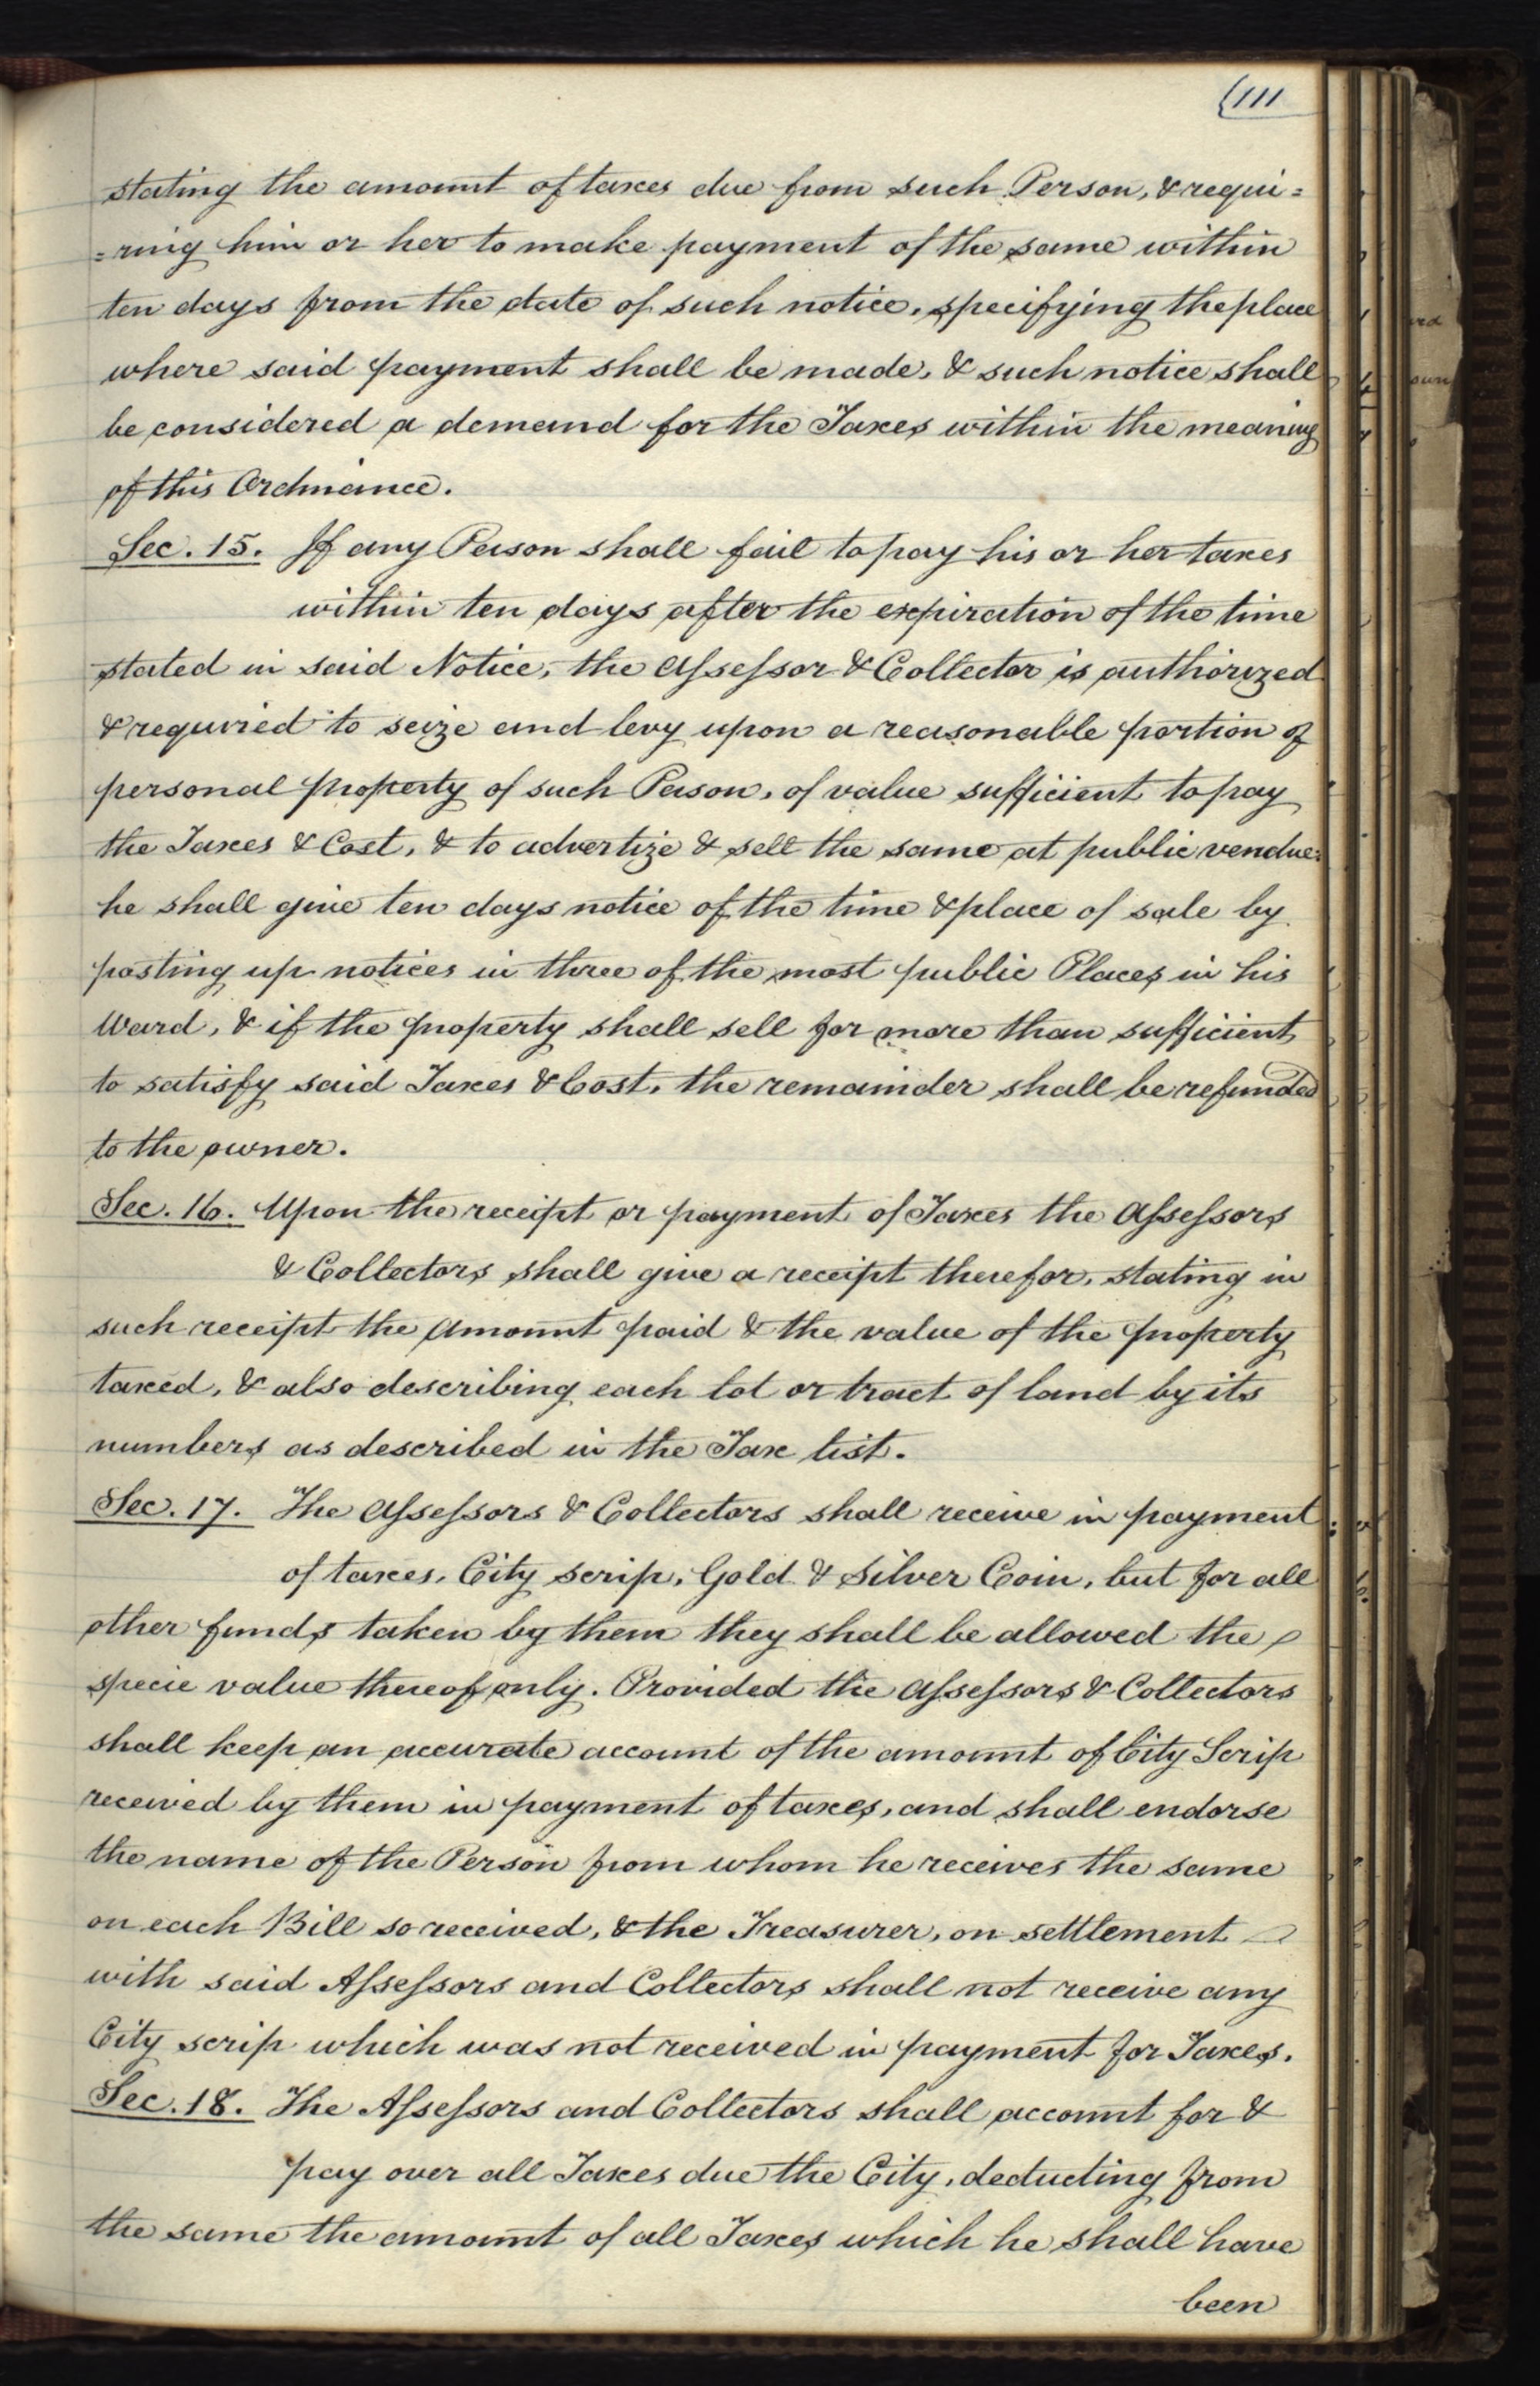 (111
stating the amount of taxes due from such Person, & requi=
=ring him or her to make payment of the same within
ten days from the date of such notice, specifying the place
where said payment shall be made, & such notice shall
be considered a demand for the Taxes within the meaning
of this Ordinance.
Sec. 15. If any Person shall fail to pay his or her taxes
within ten days after the expiration of the time
stated in said Notice, the Assessor & Collector is authorized
& required to seize and levy upon a reasonable portion of
personal property of such Person, of value sufficient to pay
the Taxes & Cost, & to advertize & sell the same at public vendue:
he shall give ten days notice of the time & place of sale by
posting up notices in three of the most public Places in his
Ward, & if the property shall sell for more than sufficient
to satisfy said Taxes & Cost, the remainder shall be refunded
to the owner.
Sec. 16. Upon the receipt or payment of Taxes the Assessors
& Collectors shall give a receipt therefor, stating in
such receipt the amount paid & the value of the property
taxed, & also describing each lot or tract of land by its
numbers as described in the Tax list.
Sec. 17. The Assessors & Collectors shall receive in payment
of taxes, City scrip, Gold & Silver Coin, but for all
other funds taken by them they shall be allowed the
specie value thereof only. Provided the Assessors & Collectors
shall keep an accurate account of the amount of City Scrip
received by them in payment of taxes, and shall endorse
the name of the Person from whom he receives the same
on each Bill so received, & the Treasurer, on settlement
with said Assessors and Collectors shall not receive any
City scrip which was not received in payment for Taxes.
Sec. 18. The Assessors and Collectors shall account for &
pay over all Taxes due the City, deducting from
the same the amount of all Taxes which he shall have
been